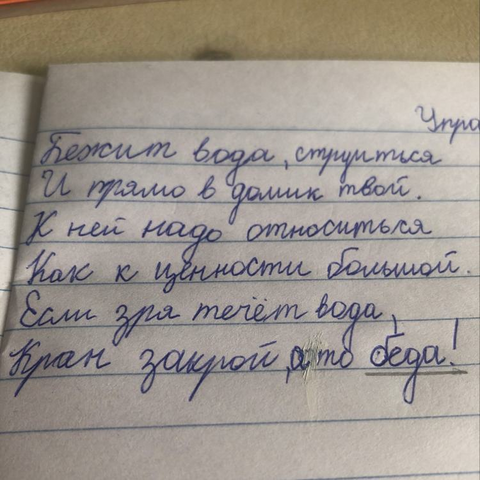 Упра
Бежит вода, струиться
И прямо в домик твой.
К ней надо относиться
Как к ценности большой.
Если зря течёт вода,
Кран закрой, а то беда!